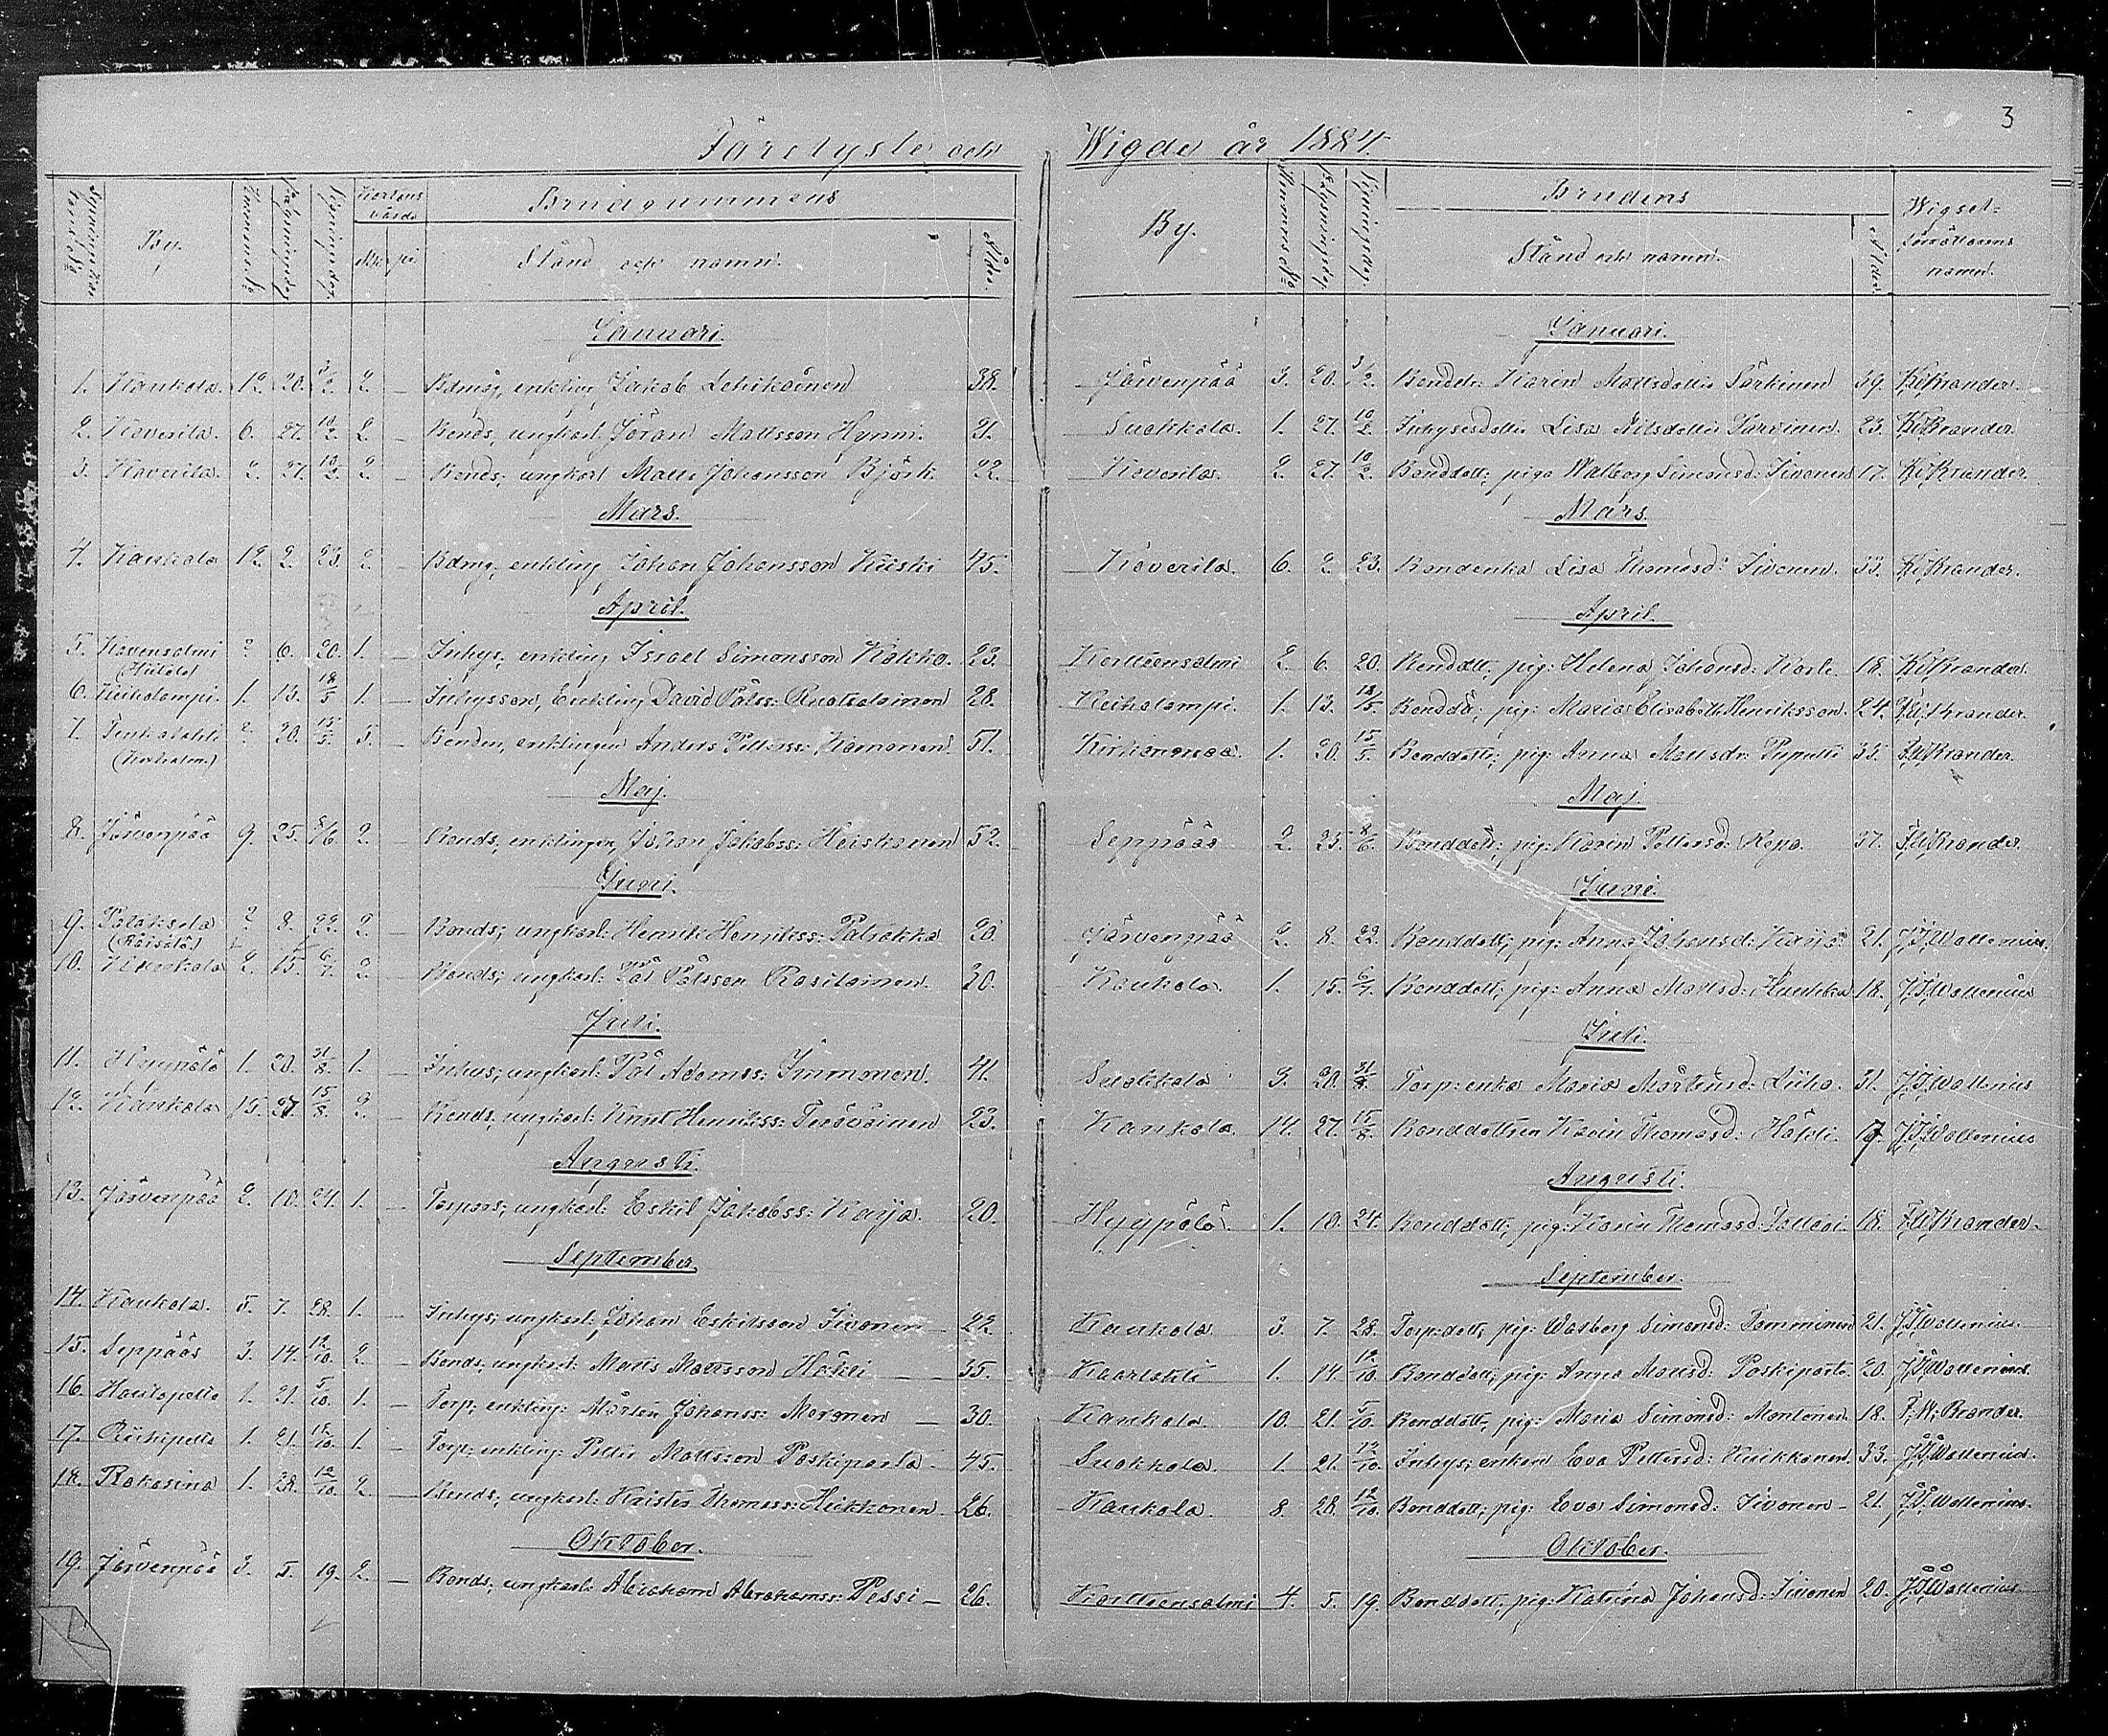 3
Förelyste och Wigde år 1884.
By. Brudgummens By. Brudens Wigsel=
Stånd och namn. Ålder. Stånd och namn. Ålder. förrättarens
namn.
Januari. Januari.
1. Kaukola. 12. 20. 3/2. 2. — Bdmåg, enkling Jakob Lehikoinen 38. Järvenpää 3. 20. 3/2. Bonddtr Karin Mattsdotter Tärkinen 39. Brander.
2. Koverila. 6. 27. 10/2. 2. — Bonds, ungkarl Göran Mattsson Hynni. 21. Suokkola. 1. 27. 10/2. Inhysesdotter Lisa Nilsdotter 23. Brander
3. Koverila. 2. 27. 10/2. 2. — Bonds; ungkarl Matts Johansson Björk. 22. Koverila 2. 27. 10/2. Bonddott; piga Walborg Simonsd: Sivonen 17. Brander
Mars. Mars.
4. Kaukola 12. 2. 23. 2. — Bdmg, enkling Johan Johansson Kuiski 45. Koverila. 6. 2. 23. Bondenka Lisa Thomasd: Sivonen. 33. Brander.
April. April.
5. Kavensalmi 2 6. 20. 1. — Inhys; enkling Israel Simonsson Kokko. 23. Kortteensalmi 2. 6. 20. Bonddott; pig: Helena Johansd: Korle. 18. Brander.
(Hiitola)
6. Keiholampi. 1. 13. 18/5 1. — Inhysson, Enkling David Pålss: Ruotsalainen 28. Keiholampi. 1. 13. 18/5. Bonddtr; pig: Maria Elisabeth Henriksson. 24. Brander
7. Tenkalahti 2 20. 15/5. 5. — Bonden, enklingen Anders Petterss: Komonen. 51. 1. 20. 15/5. Bonddott; pig: Anna Mattsdr: Pyputti 35. Brander.
(Kexholm.)
Maj. Maj.
8. Järvenpää 9. 25. 8/6. 2. — Bonds, enklingen Johan Jakobss: Heiskanen 52. Seppääs 2. 25. 8/6. Bonddott; pig: Karin Pettersd: Repo. 37. Brander
Juni. Juni.
9. 2. 8. 22. 2. — Bonds; ungkarl: Henrik Henrikss: Patrakka. 20. Järvenpää 2. 8. 22. Bonddott; pig: Anna Johansd: Kaija 21. J. Wallenius.
(Räisälä)
10. Kaukola 2. 15. 6/7. 2. — Bonds; ungkarl: Pål Pålsson Rasilainen. 30. Kaukola. 1. 15. 6/7. Bonddott; pig: Anna Mattsd: Haukka 18. J. Wallenius
Juli. Juli.
11. Hyypölö 1. 20. 31/8. 1. — Inhys; ungkarl: Pål Adamss: Immonen. 41. Suokkola 3. 20. 31/8. Torp: enka Maria Mårtensd: Liiha. 31. J. Wallenius
12. Kaukola 15. 27. 15/8. 2. — Bonds; ungkarl: Knut Henrikss: Teräväinen 23. Kaukola. 14. 27. 15/8. Bonddottren Karin Thomasd: Häkli. 17. J. Wallenius
Augusti. Augusti.
13. Järvenpää 2. 10. 24. 1. — Torpars; ungkarl: Eskil Jakobss: Kaija. 20. Hyypölö. 1. 10. 24. Bonddott; pig: Karin Thomasd: 18. Brander.
September. September.
14. Kaukola. 5. 7. 28. 1. — Inhys; ungkarl: Johan Eskilsson Sivonen — 22. Kaukola 3. 7. 28. Torp:dott; pig: Walborg Simonsd: Tomminen 21. J. Wallenius.
15. Seppääs 3. 14. 12/10. 2. — Bonds; ungkarl: Matts Mattsson Häkli — 35. Kaarlahti 1. 14. 12/10. Bonddott; pig: Anna Mattsd: Paskiparta. 20. J. Wallenius.
16. Hautapelto 1. 21. 5/10. 1. — Torp; enkling: Mårten Johanss: Moronen — 30. Kaukola. 10. 21. 5/10. Bonddott; pig: Maria Simonsd: Montonen. 18. F. W. Brander.
17. Riihipelto 1. 21. 12/10. 1. — Torp; enkling: Petter Mattsson Paskiparta. 45. Suokkola. 1. 21. 12/10. Inhys; enkan Eva Pettersd: Kuikkanen. 33. J. Wallenius.
18. Rokosina 1. 28. 12/10. 2. — Bonds; ungkarl: Krister Thomass: Hiekkonen. 26. Kaukola. 8. 28. 12/10. Bonddott; pig: Eva Simonsd: Sivonen — 21. J. Wallenius.
Oktober. Oktober.
19. Järvenpää 3. 5. 19. 2. — Bonds; ungkarl: Abraham Abrahamss: Pessi — 26. Kortteensalmi 4. 5. 19. Bonddott; pig: Katrina Johansd: Sivonen 20. J. Wallenius